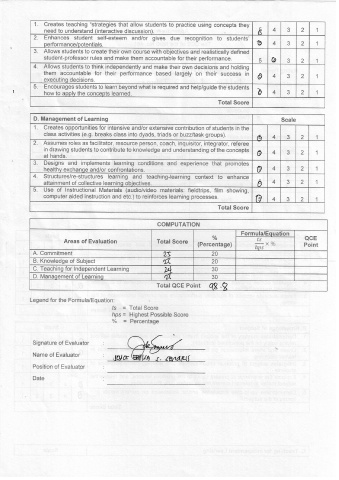 1. Creates teaching strategies that allow students to practice using concepts they need to understand (interactive discussion). 4 3 2 1
2. Enhances student self-esteem and/or gives due recognition to students' performance/potentials. 4 3 2 1
3. Allows students to create their own course with objectives and realistically defined student-professor rules and make them accountable for their performance. 5 3 2 1
4. Allows students to think independently and make their own decisions and holding them accountable for their performance based largely on their success in executing decisions. 4 3 2 1
5. Encourages students to learn beyond what is required and help/guide the students how to apply the concepts learned. 4 3 2 1
Total Score
D. Management of Learning Scale
1. Creates opportunities for intensive and/or extensive contribution of students in the class activities (e.g. breaks class into dyads, triads or buzz/task groups). 4 3 2 1
2. Assumes roles as facilitator, resource person, coach, inquisitor, integrator, referee in drawing students to contribute to knowledge and understanding of the concepts at hands. 4 3 2 1
3. Designs and implements learning conditions and experience that promotes healthy exchange and/or confrontations. 4 3 2 1
4. Structures/re-structures learning and teaching-learning context to enhance attainment of collective learning objectives. 4 3 2 1
5. Use of Instructional Materials (audio/video materials: fieldtrips, film showing, computer aided instruction and etc.) to reinforces learning processes. 4 3 2 1
Total Score
COMPUTATION
Areas of Evaluation Total Score % (Percentage) Formula/Equation ts/hps × % QCE Point
A. Commitment 25 20
B. Knowledge of Subject 20
C. Teaching for Independent Learning 24 30
D. Management of Learning 30
Total QCE Point 98.8
Legend for the Formula/Equation:
ts = Total Score
hps = Highest Possible Score
% = Percentage
Signature of Evaluator :
Name of Evaluator :
Position of Evaluator :
Date :